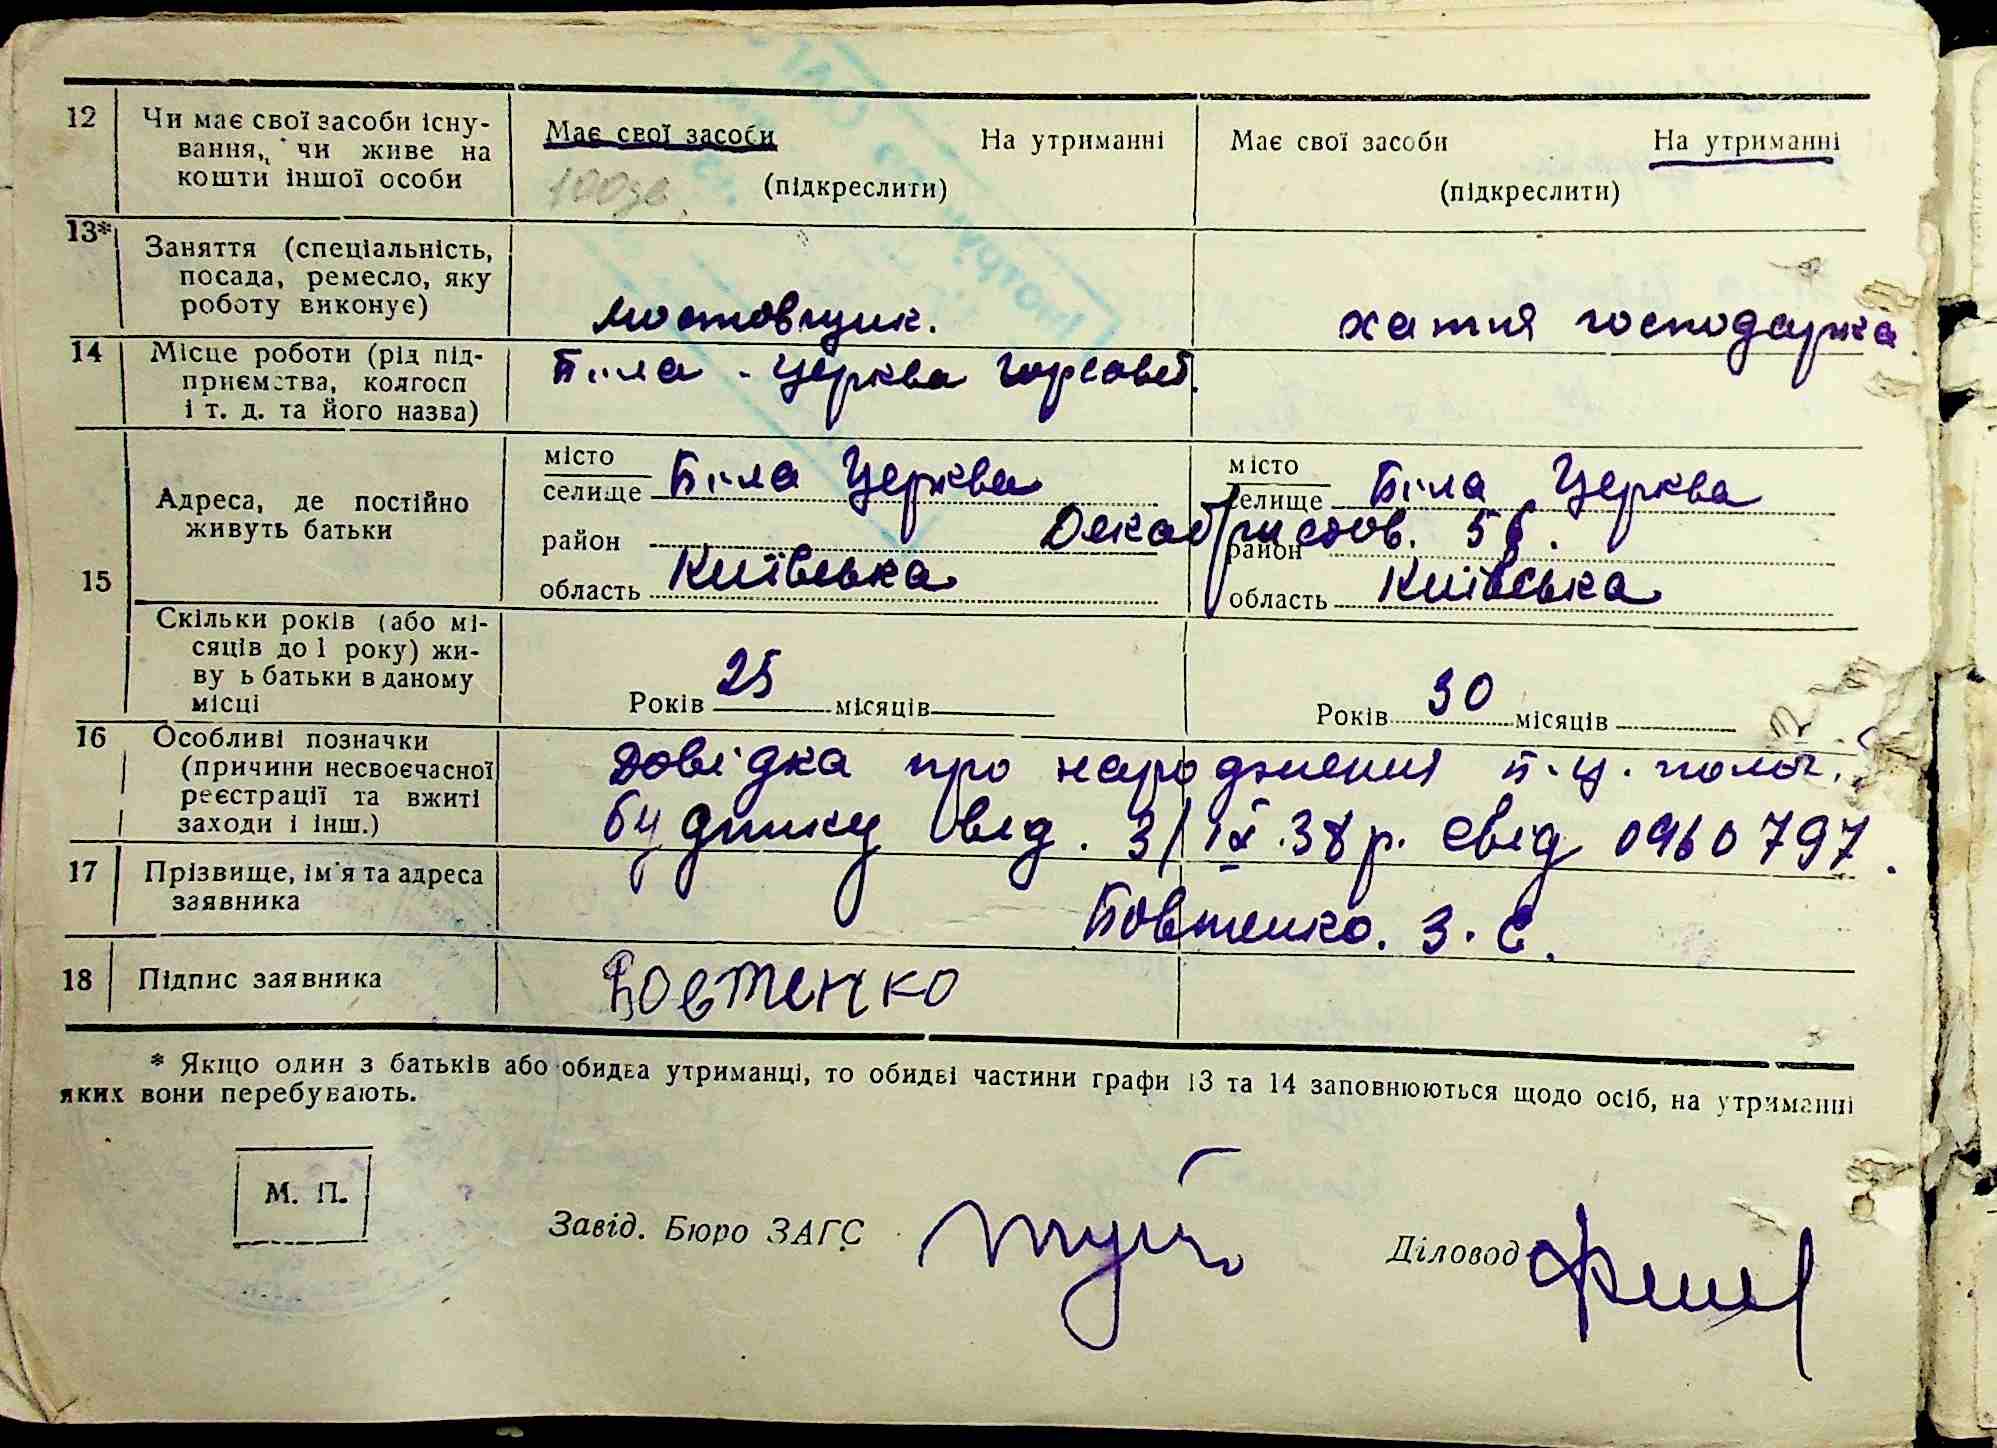 12 Чи має свої засоби існу- Має свої засоби На утриманні Має свої засоби На утриманні
вання, чи живе на
кошти іншої особи (підкреслити) (підкреслити)
13* Заняття (спеціальність,
посада, ремесло, яку
роботу виконує) мостовщик. хатня господарка
14 Місце роботи (рід під- Біла - Церква горсовет.
приємства, колгосп
і т. д. та його назва)
15 Адреса, де постійно
живуть батьки
місто
селище Біла Церква
район
область Київська
місто
селище Біла Церква
район Декабристов. 56.
область Київська
Скільки років (або мі-
сяців до 1 року) жи-
ву ь батьки в даному
місці
Років 25 місяців
Років 30 місяців
16 Особливі позначки
(причини несвоєчасної
реєстрації та вжиті
заходи і інш.)
Довідка про народження Б.Ц. полог.
будинку від. 3/IX.38 р. свід 0960797.
17 Прізвище, ім'я та адреса
заявника
Бовтенко. З. Є.
18 Підпис заявника Бовтенко
* Якщо один з батьків або обидва утриманці, то обидві частини графи 13 та 14 заповнюються щодо осіб, на утриманні
яких вони перебувають.
М. П.
Завід. Бюро ЗАГС Діловод